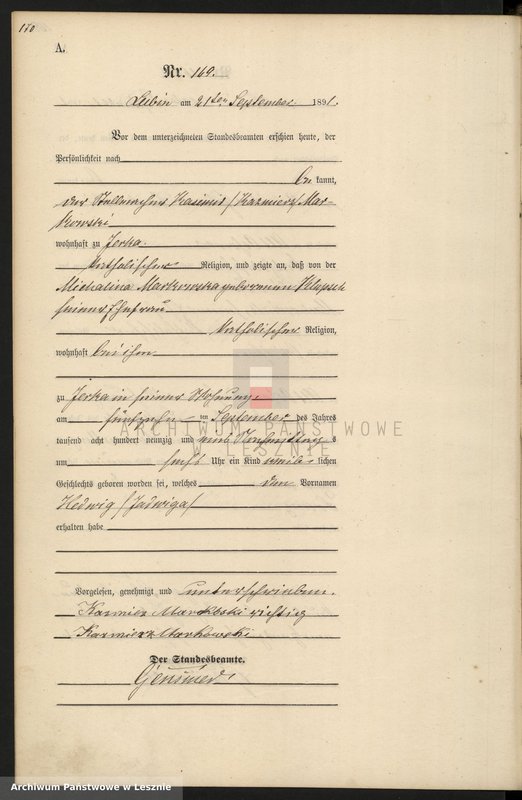 170
A.
Nr. 169.
Lubin am 21ten September 1891.
Vor dem unterzeichneten Standesbeamten erschien heute, der
Persönlichkeit nach
be kannt,
der Stellmacher Kasimir /Kazmierz/ Mar-
kowski
wohnhaft zu Jerka.
katholischer Religion, und zeigte an, daß von der
Michalina Markowska geborenen Klupsch
seiner Ehefrau
katholischer Religion,
wohnhaft bei ihm
zu Jerka in seiner Wohnung,
am fünfzehn ten September des Jahres
tausend acht hundert neunzig und eins Vormittag s
um sechs Uhr ein Kind weib lichen
Geschlechts geboren worden sei, welches den Vornamen
Hedwig /Jadwiga/
erhalten habe
Vorgelesen, genehmigt und unterschrieben.
Kazmierz richtig
Kazmierz Markowski
Der Standesbeamte.
ARCHIWUM PAŃSTWOWE
W LESZNIE
Archiwum Państwowe w Lesznie